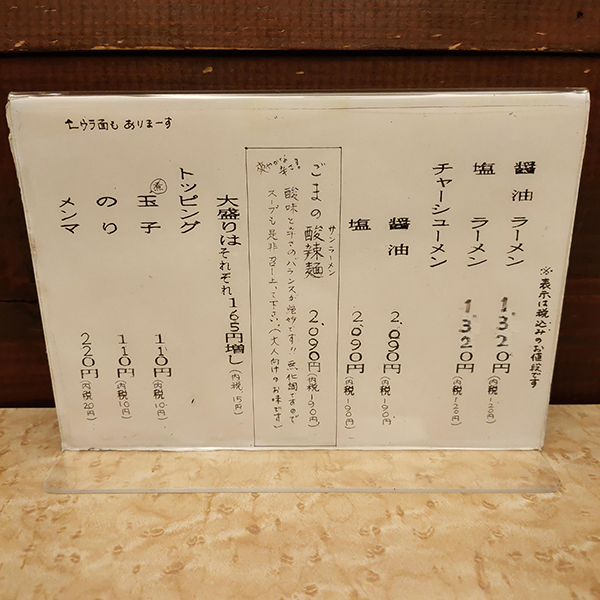 ←ウラ面も ありまーす
※表示は税込みのお値段です
醤油 ラーメン 1.320円(内税120円)
塩 ラーメン 1.320円(内税120円)
チャーシューメン
醤油 2.090円(内税190円)
塩 2.090円(内税190円)
サンラーメン
ごまの酸辣麺 2.090円(内税190円)
爽やかな辛さ
酸味と辛さのバランスが絶妙です!! 無化調ですので
スープも是非召し上って下さい(大人向けのお味です)
大盛りはそれぞれ165円増し(内税15円)
トッピング
煮玉子 110円(内税10円)
のり 110円(内税10円)
メンマ 220円(内税20円)